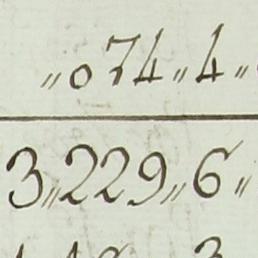 „074„4„
3„229„6„